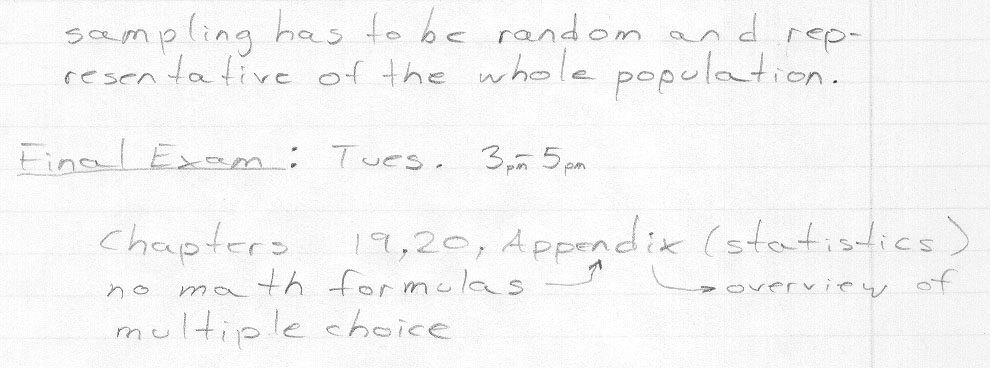 sampling has to be random and rep-
resentative of the whole population.
Final Exam: Tues. 3pm-5pm
Chapters 19,20, Appendix (statistics)
no math formulas → overview of
multiple choice